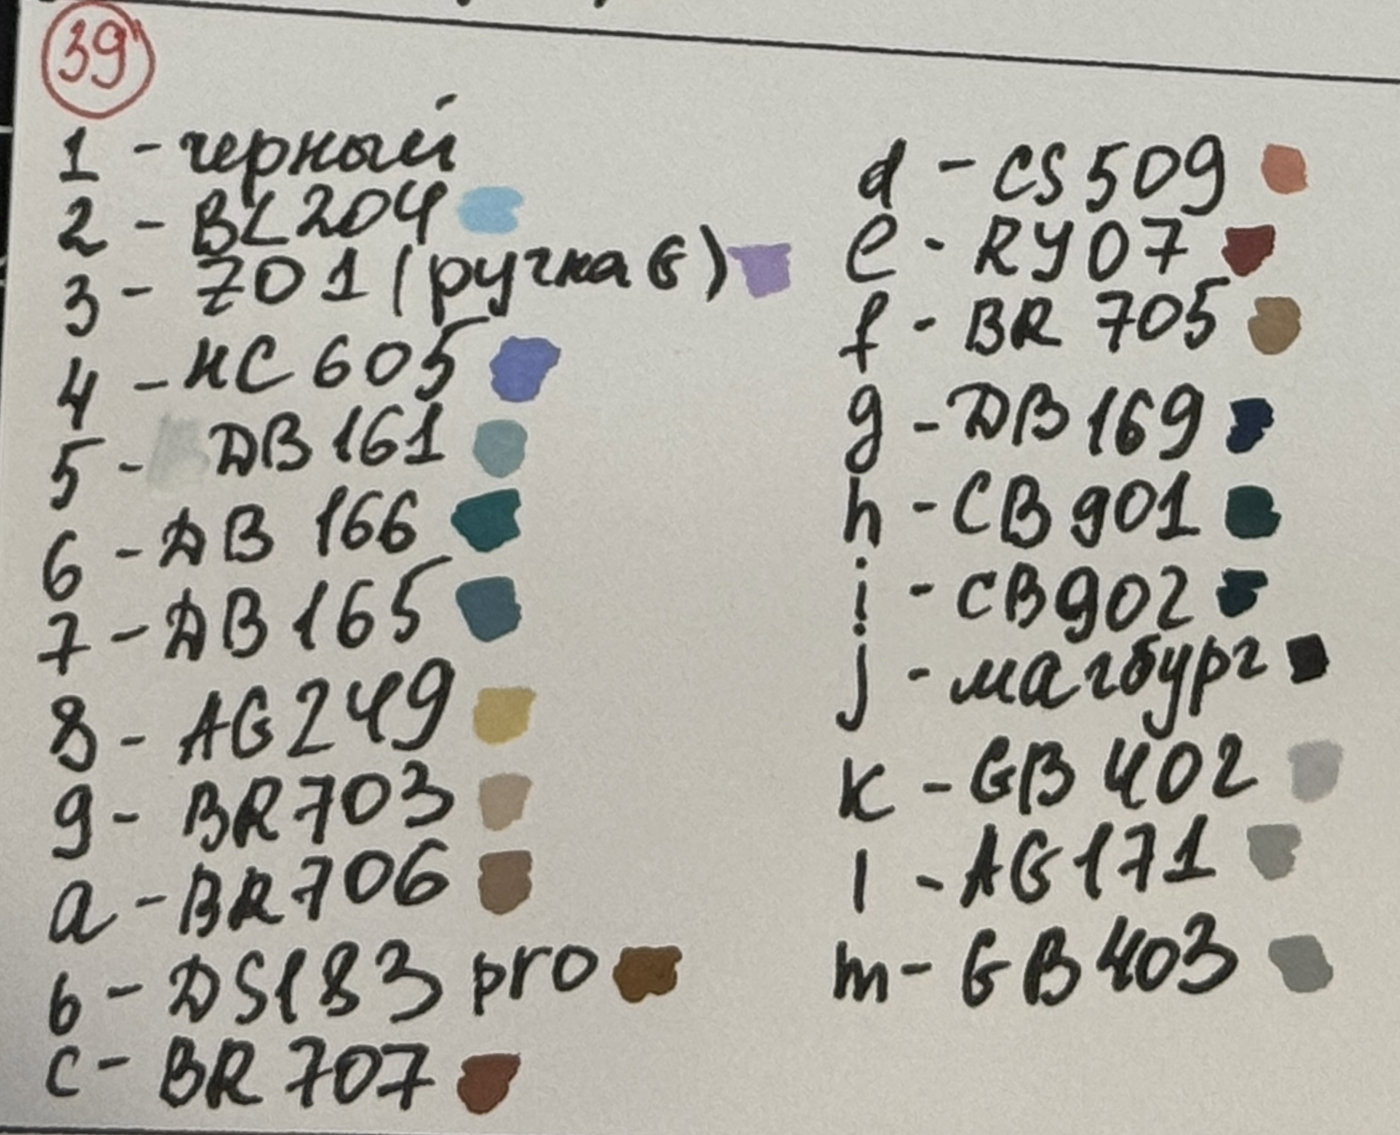 39"
1 - черный
2 - BL204
3 - 701 (ручка G)
4 - НС 605
5 - DB 161
6 - DB 166
7 - DB 165
8 - AG249
9 - BR703
a - BR706
b - DS183 pro
c - BR 707
d - CS509
e - RY07
f - BR 705
g - DB169
h - CB901
i - CB902
j - магбург
k - GB 402
l - AG171
m - GB403